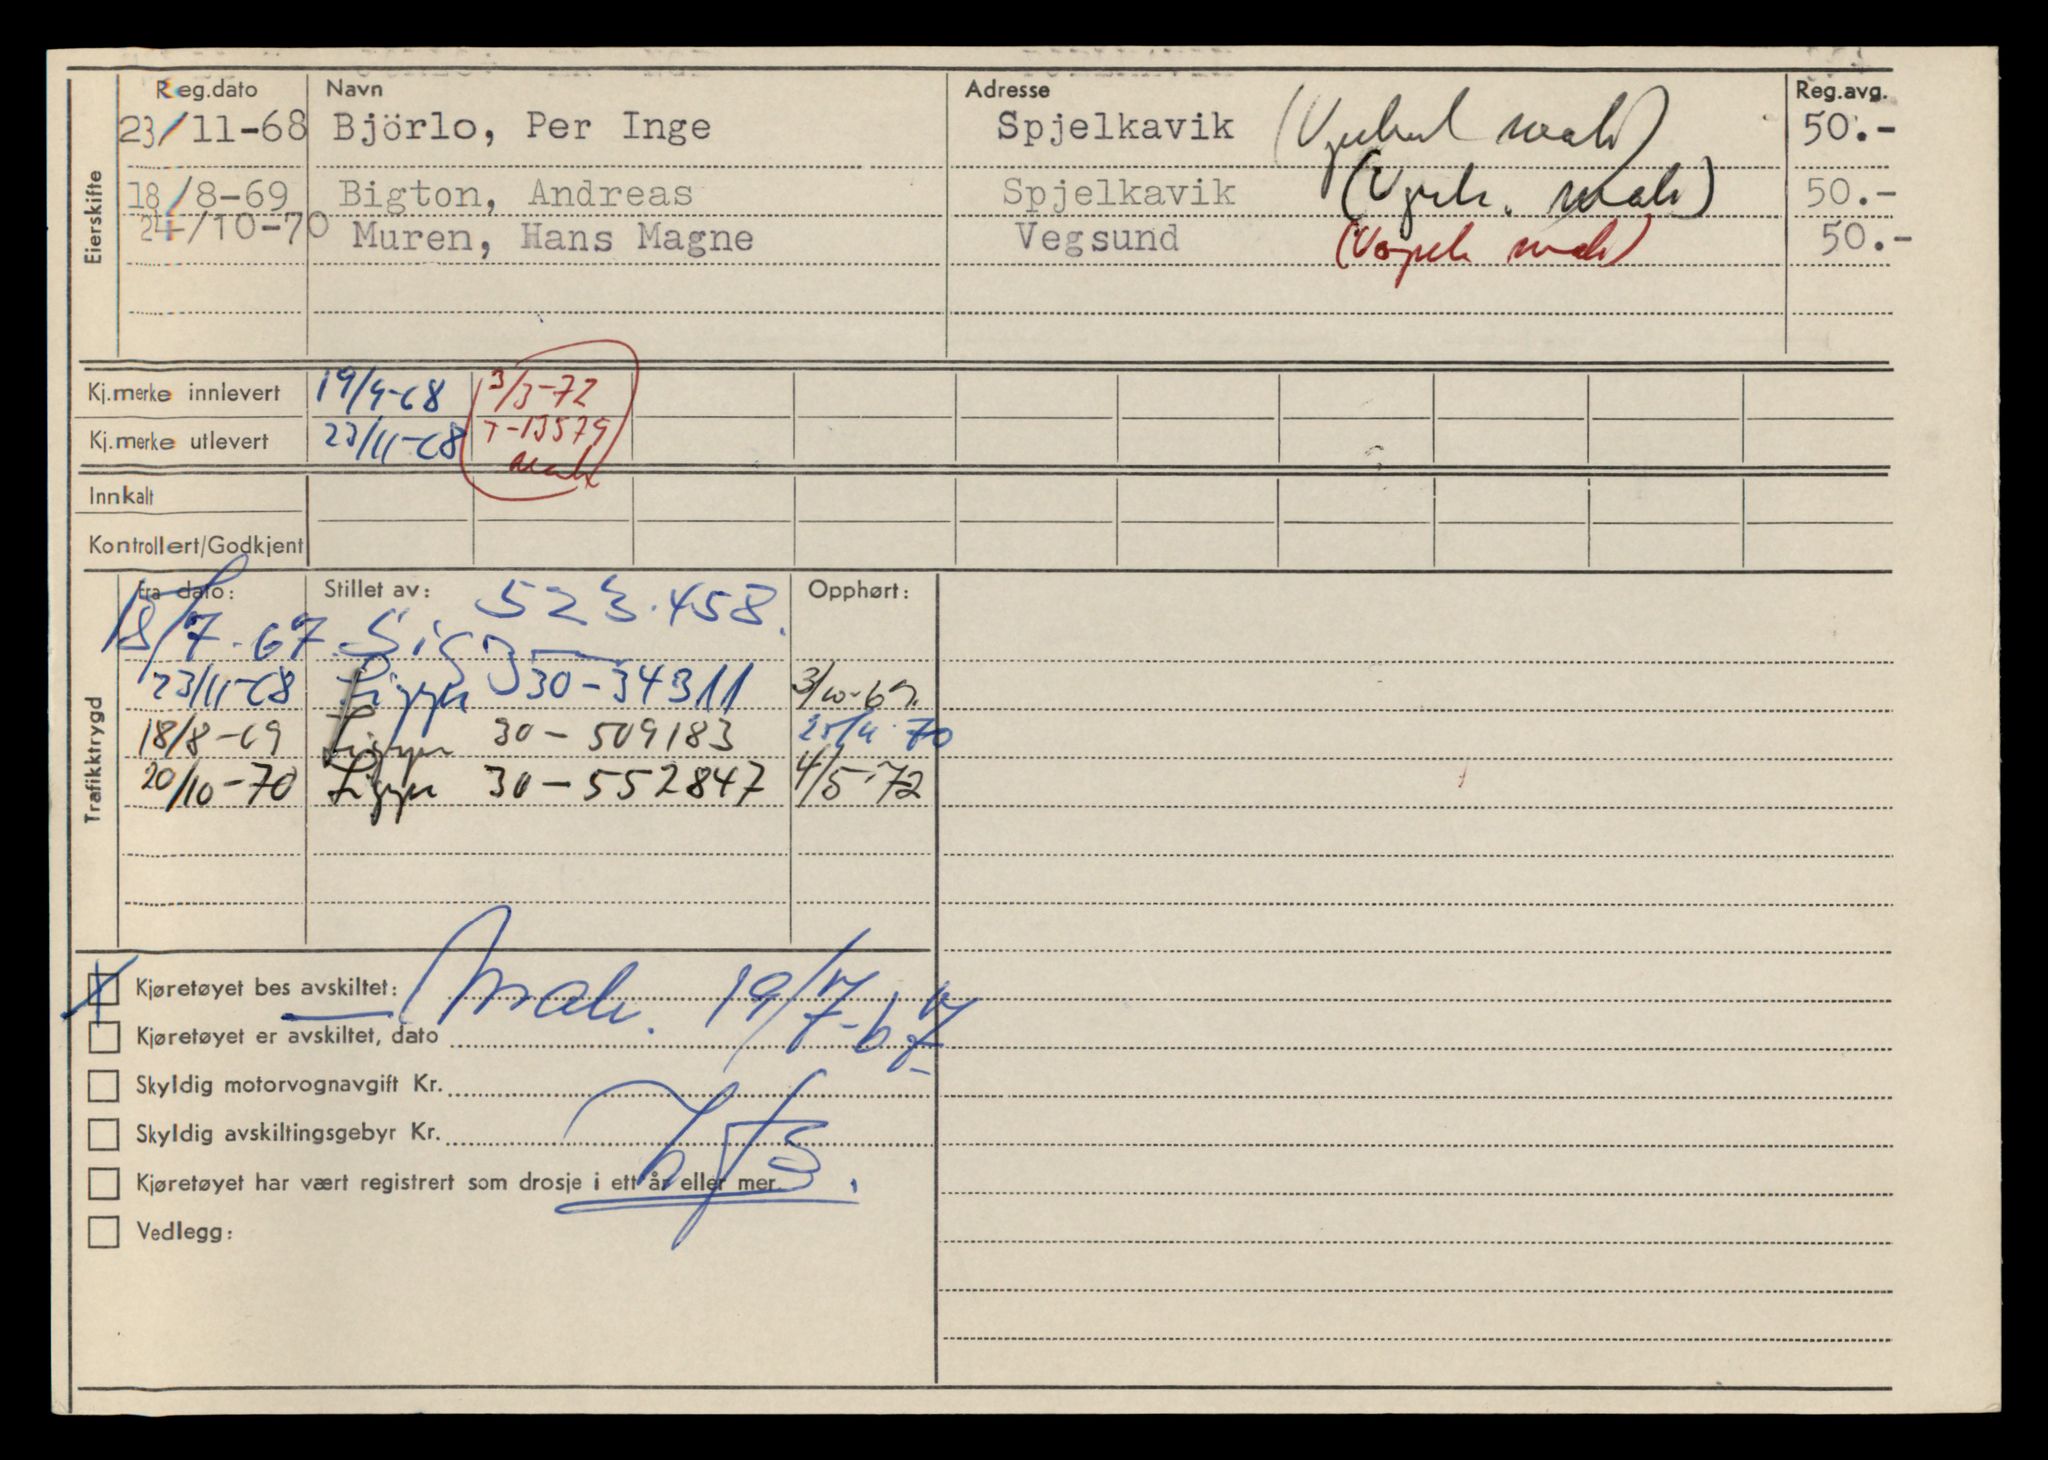 Reg.dato Navn Adresse Reg.avg.
23/11-68 Björlo, Per Inge Spjelkavik 50.-
18/8-69 Bigton, Andreas Spjelkavik 50.-
24/10-70 Muren, Hans Magne Vegsund 50.-
Eierskifte
Kj.merke innlevert 19/9-68 3/3-72
Kj.merke utlevert 23/11-68 T-13579
Innkalt
Kontrollert/Godkjent
Fra dato: Stillet av: 523.458. Opphørt:
18/7-67
23/11-68 30-34311 3/10-69.
18/8-69 30-509183
20/10-70 30-552847 4/5-72
Trafikktrygd
Kjøretøyet bes avskiltet: 19/7-67
Kjøretøyet er avskiltet, dato
Skyldig motorvognavgift Kr.
Skyldig avskiltingsgebyr Kr.
Kjøretøyet har vært registrert som drosje i ett år eller mer.
Vedlegg: